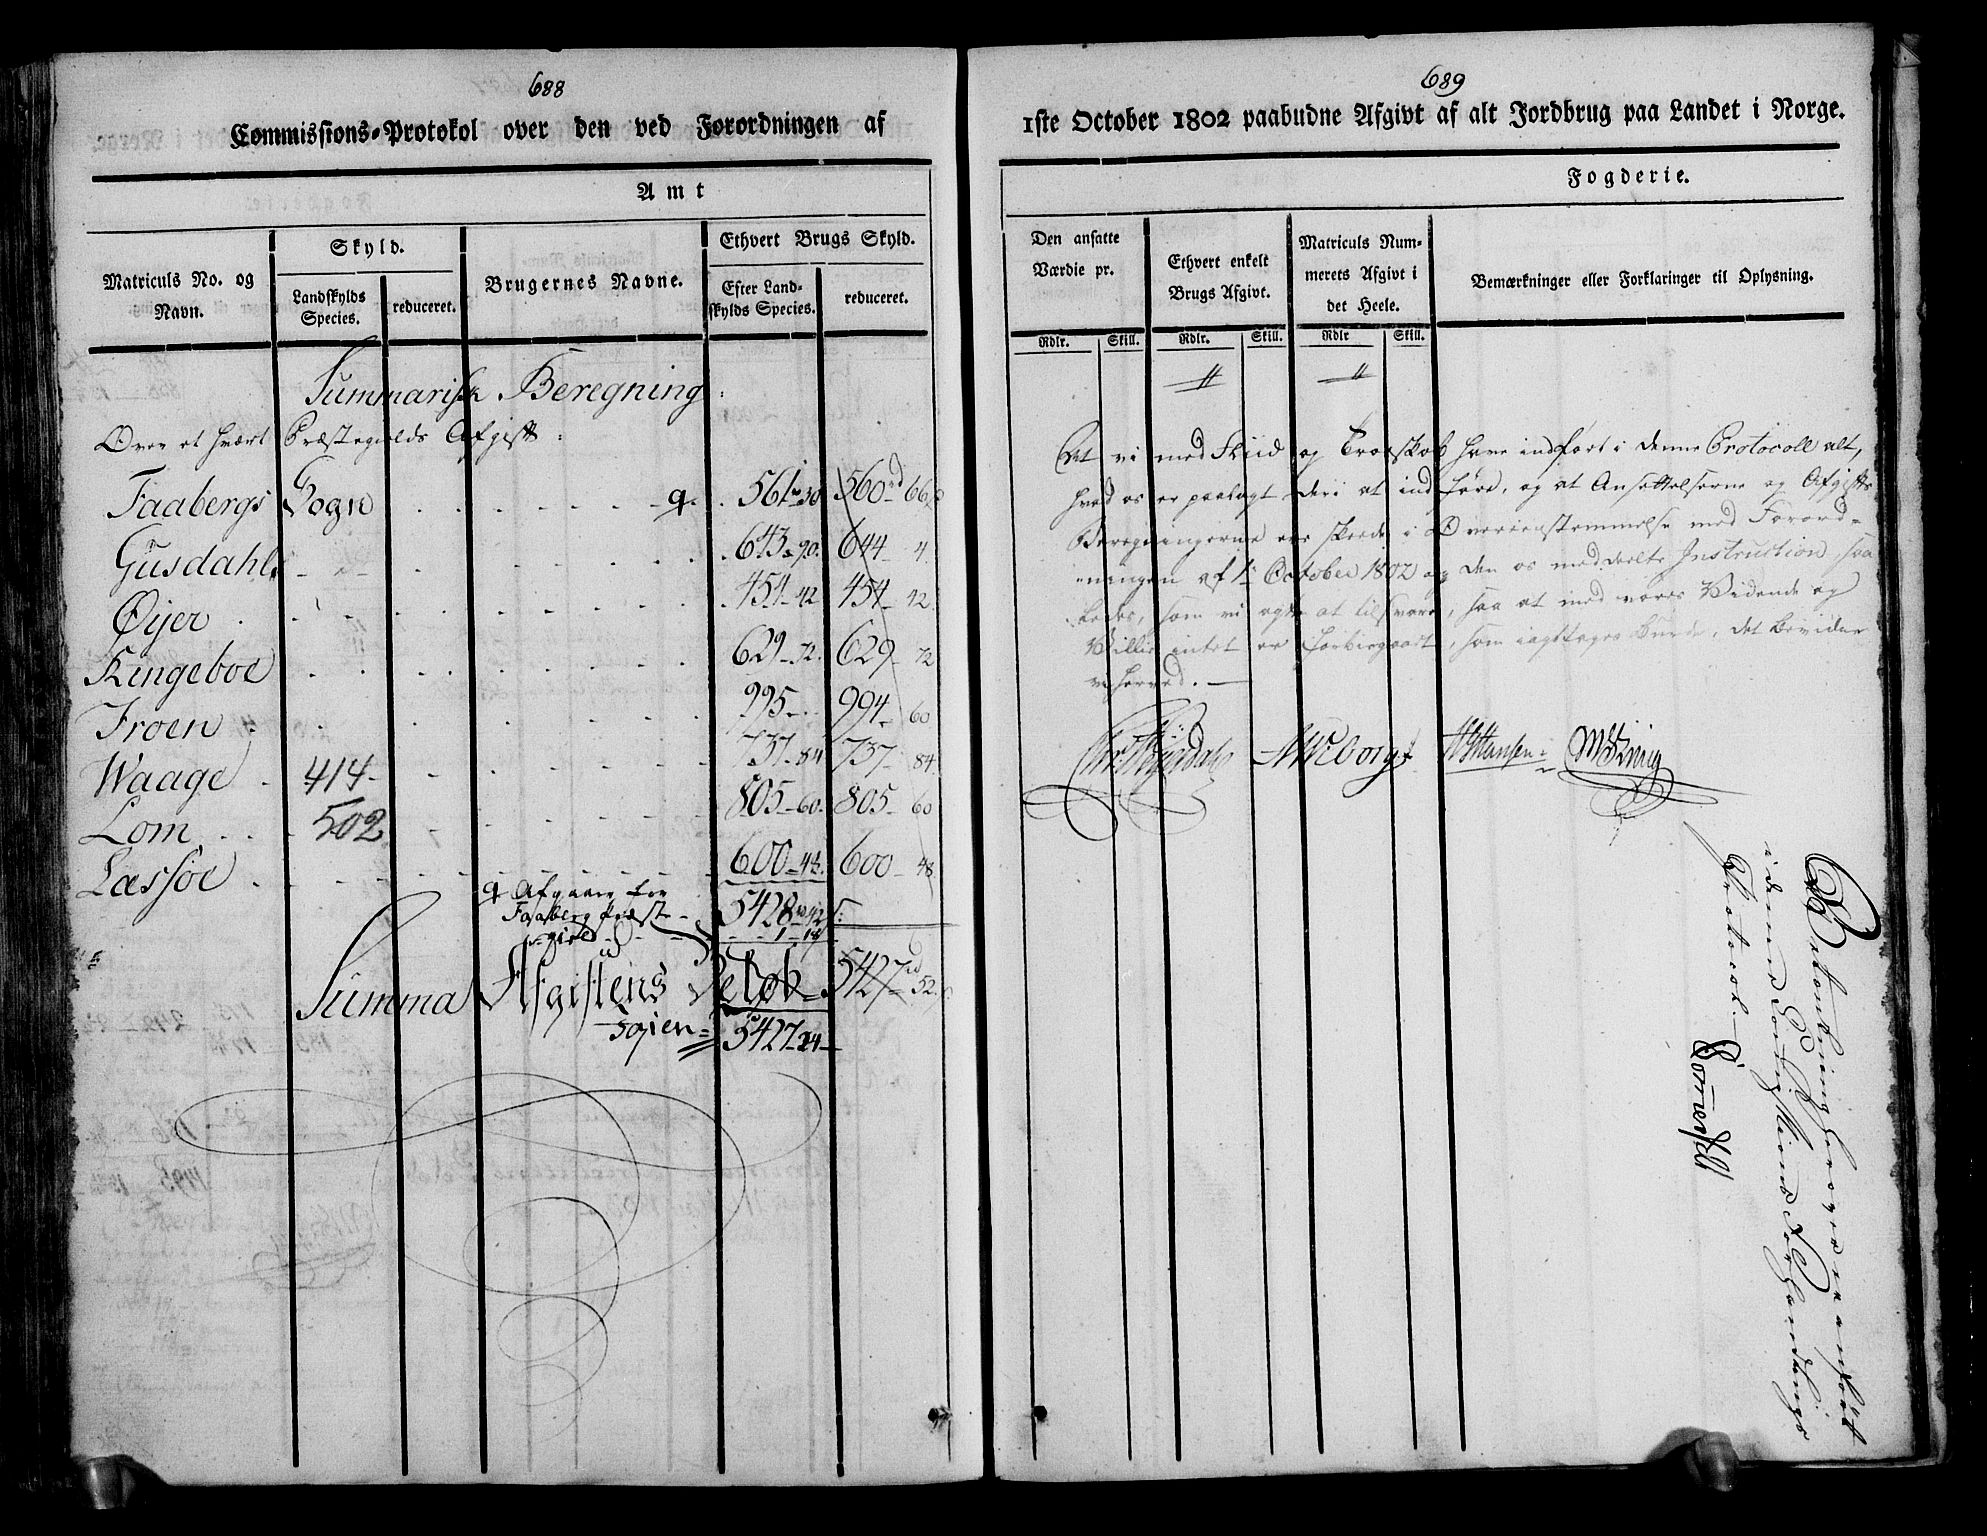 688
Commissions-Protokol over den ved Forordningen af
Amt
Matriculs No. og Navn.
Skyld.
Landskylds Species.
reduceret.
Brugernes Navne.
Ethvert Brugs Skyld.
Efter Landskylds Species.
reduceret.
Summarisk Beregning:
Over et hvert Præstegields Afgift:
Faabergs Sogn q. 561-30 560rd 66
Gusdahls 643-90. 644 4.
Øijer 454-42 454-42
Ringeboe 629-72. 629-72
Froen 995- 994-60
Waage 414- 737-84 737-84
Lom 502 805-60. 805-60
Læssøe 600-48. 600-48
q Afgaaer for Faaberg Præstegield 5428 42
1-18
Summa Afgiftens Beløb 5427 52.
5427-24
689
1ste October 1802 paabudne Afgivt af alt Jordbrug paa Landet i Norge.
Fogderie.
Den ansatte Værdie pr.
Ethvert enkelt Brugs Afgivt.
Matriculs Nummerets Afgivt i det Heele.
Bemærkninger eller Forklaringer til Oplysning.
Rdlr. Skill. Rdlr. Skill. Rdlr Skill.
At vi med Fliid og Troeskab have indført i denne Protocoll alt,
hvad os er paalagt deri at indføre, og at Ansættelserne og Afgifts
Beregningerne ere skeede i Overeenstemmelse med Forord-
ningen af 1. October 1802 og den os meddeelte Instruction, saa
ledes, som vi agte at tilsvare, saa at med vores Vidende og
Villie intet er forbiegaaet, som iagttages burde, det bevidne
vi herved.